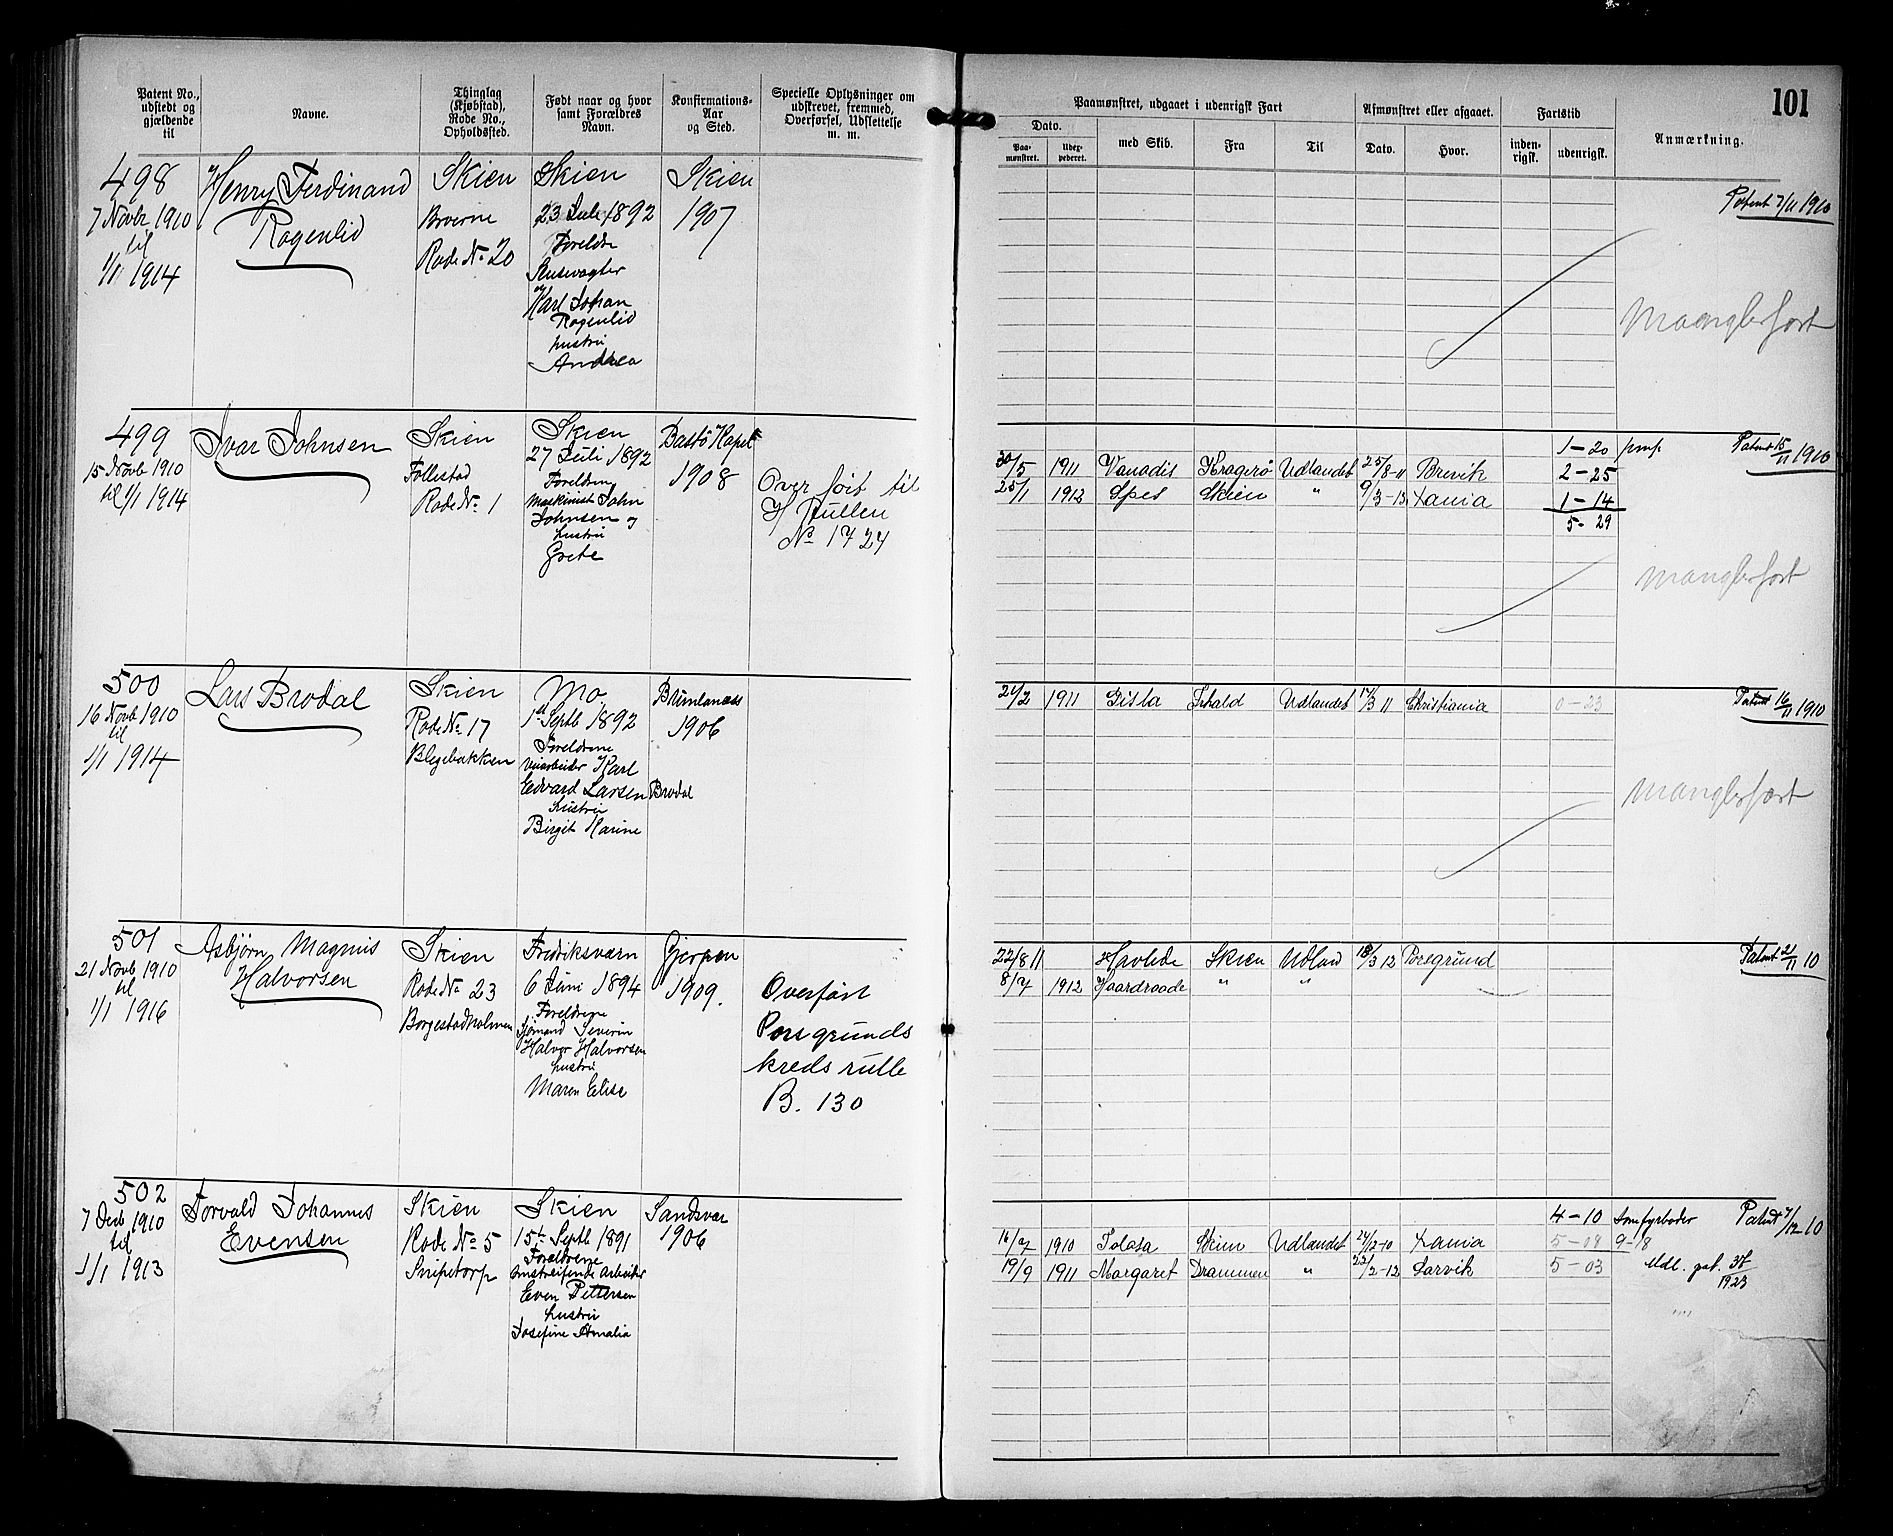 Patent No., udstedt og gjældende til
Navne.
Thinglag (Kjøbstad), Rode No., Opholdssted.
Født naar og hvor samt Forældres Navn.
Konfirmations-Aar og Sted.
Specielle Oplysninger om udskrevet, fremmed, Overførsel, Udslettelse m. m.
498
7 Novbr 1910
til
1/1 1914
Henry Ferdinand
Rogenlid
Skien
Broerne
Rode No 20
Skien
23 Juli 1892
Foreldre
Slusevogter
Karl Johan
Rogenlid
hustru
Andrea
Skien
1907
499
15 Novb 1910
til 1/1 1914
Ivar Johnsen
Skien
Follestad
Rode No 1
Skien
27 Juli 1892
Foreldre
Maskinist John
Johnsen og
hustru
Grete
Bastö Kapel
1908
Overført til
H Rullen
No 1724
500
16 Novb 1910
til
1/1 1914
Lars Brodal
Skien
Rode No 17
Blegebakken
Mo,
1st Septb 1892
Foreldrene
Veiarbeider Karl
Edvard Larsen Brodal
hustru
Birgit Karine
Brunlanæs
1906
501
21 Novb 1910
til
1/1 1916
Asbjörn Magnus
Halvorsen
Skien
Rode No 23
Borgestadholmen
Fredriksværn
6 Juni 1894
Foreldrene
Sjömand Severin
Halvor Halvorsen
hustru
Maren Elise
Gjerpen
1909.
Overført
Porsgrunds
kreds rulle
B. 130
502
7 Decb 1910
til
1/1 1913
Torvald Johannes
Evensen
Skien
Rode No 5
Snipetorp
Skien
15t Septb 1891
Foreldrene
Omstreifende Arbeider
Even Pettersen
hustru
Josefine Amalia
Sandsvær
1906
101
Paamønstret, udgaaet i udenrigsk Fart
Afmønstret eller afgaaet.
Fartstid
Anmærkning.
Dato.
Paamønstret.
Udexpederet.
med Skib.
Fra
Til
Dato.
Hvor.
indenrigsk.
udenrigsk.
Patent 7/11 1910
Mangler fort
1-20
Patent 15/11 1910
30/5 1911 Vanadis Kragerö Udlandet 25/8-11 Brevik 2-25
25/1 1912 Spes Skien " 9/3-12 Xania 1-14
5-29
Mangler fort
21/2 1911 Gisla Udlandet 14/3 11 Christiania 0-23
Patent 16/11 1910
Mangler fort
22/8 11 Havlide Skien Udland 18/3 12 Porsgrund
Patent 21/11 10
8/7 1912 Haardraade " "
4-10
Patent 7/12-10
16/7 1910 Tolosa Skien Udlandet 24/12-10 Xania 5-08 9-18
19/9 1911 Margaret Drammen " 22/2-12 Larvik 5-03
Udl. pat.
1923